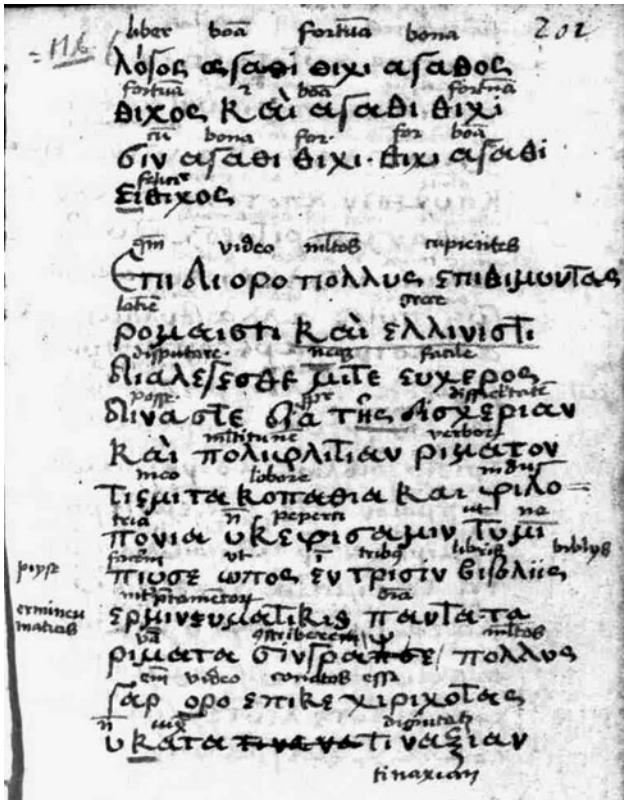 liber boā fortūa bona 202
λόγος αγαθι θιχι αγαθος
fortūa boā fortūa
θιχος και αγαθι θιχι
cū bona for. for boā
σιν αγαθι θιχι · θιχι αγαθι
ειθιχος
qm̄ video ml̄tos cupientes
Επι δι ορο πολλυς επιθιμουντας
latie grece
ρομαιστι και ελλινιστι
disputare neqȝ facile
διαλεγεσθε μιτε ευχερος
posse difficltatē
διναστε δια της δισχεριαν
verboꝝ
και πολιπλιτιαν ριματον
meo labore
τις μιτα κοπαθια και φιλο=
n̄ peperci ut ne
πονια υκ εφισαμιν του μι
ut ī tribȝ libris biblys
πιυσε ωπος εν τρισιν βιβλιις
piyse
ermineu
maticis
ερμινευματικις παντα τα
mltos
ριματα σινγραπσε πολλυς
em̄ video conatos esse
γαρ ορο επικεχιριχοτας
n̄ dignitatē
υ κατα τιν αξιαν
tinaxian